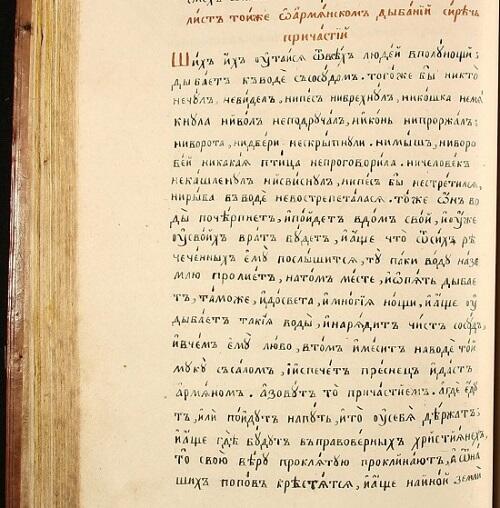 листъ то́йже ѿармѧ́нскомъ дыба́нїй си́рѣчь
прича́стїй
Ши́хъ и́хъ ѹ҆та́йсѧ ѿвсѣ́хъ люде́й вполу́нощи
дыба́етъ къводѣ̀ съсосу́домъ. того́же бы̀ никто̀
нечу́лъ, неви́делъ, нипе́съ нибрехну́лъ, нико́шка немѧ́
кнула ниво́лъ неподруча́лъ, нико́нь нипроржа́лъ,
ниворота, нидве́ри нескры́пнули. нимы́шъ, ниворо
бе́й никака́ѧ пти́ца непроговори́ла. ничелове́къ
нека́шленулъ нисви́снулъ, нипе́съ бы̀ нестрети́лсѧ,
нирыба въводѣ̀ невострепета́ласѧ. то́же ѡ҆́нъ во
ды̀ поче́рпнетъ, и҆по́йдетъ вдо́мъ сво́й, и҆ѹ҆́же
ѹ҆свои́хъ вра́тъ бу́детъ, и҆а́ще что̀ ѿси́хъ рѣ
че́ченныхъ е҆му̀ послы́шитсѧ, ту̀ па́ки во́ду на́зе
млю проли́етъ, нато́мъ ме́сте, и҆ѡ҆пѧ́ть дыба́е
тъ, та́може, и҆до́света, и҆мно́гїѧ но́щи, и҆а́ще ѹ҆
дыба́етъ такі́ѧ воды̀, и҆нарѧди́тъ чи́стъ сосу́дъ,
и҆вче́мъ е҆му̀ лю́бо, вто́мъ и҆меси́тъ наводѣ̀ то́й
муку̀ съса́ломъ, и҆испече́тъ пре́снецъ и҆да́стъ
а҆рмѧ́номъ. а҆зову́тъ то̀ прича́стїемъ. а҆гдѐ е҆́ду
тъ, и҆лѝ по́йдутъ напу́ть, и҆то̀ ѹ҆себѧ̀ де́ржатъ,
и҆а́ще гдѐ бу́дутъ въправове́рныхъ христїѧ́нехъ,
то̀ свою̀ ве́ру проклѧ́тую проклина́ютъ, а҆ѿна́
шихъ попо́въ кре́стѧтсѧ, и҆а́ще наи҆но́й землѝ